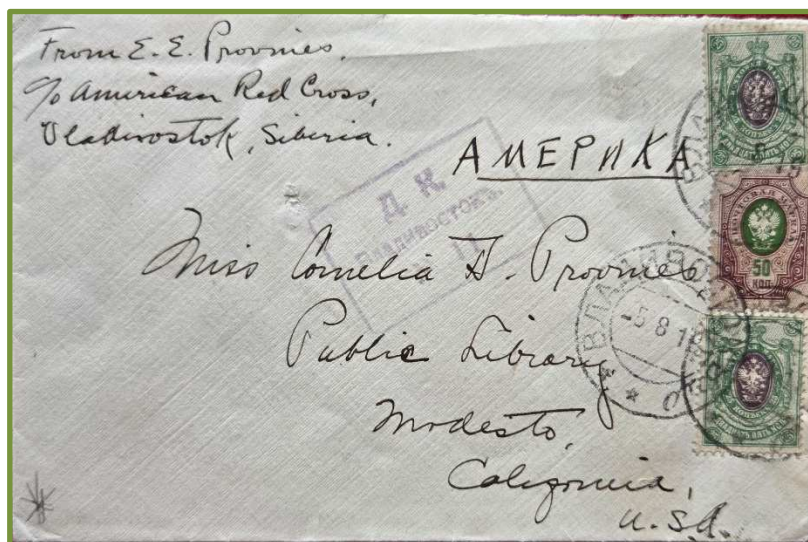 From E. E. Provines,
c/o American Red Cross,
Vladivostok, Siberia.
АМЕРИКА
Д. Ц.
ВЛАДИВОСТОКЪ.
Miss Cornelia D. Provines
Public Library
Modesto,
California,
U.S.A.
ПОЧТОВАЯ МАРКА
50
КОП.
ВЛАДИВОСТОКЪ
-5 8 19